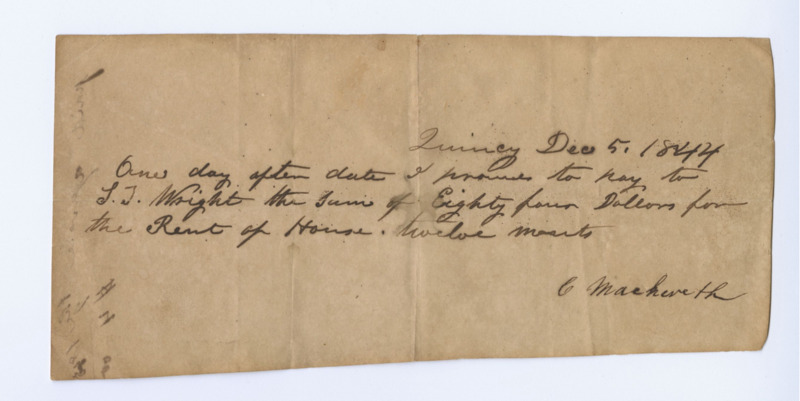 Quincy Dec 5. 1844
One day after date I promes to pay to
S. T. Wright the Sum of Eighty four Dollors for
the Rent of House. twelve monts
C Mackweth